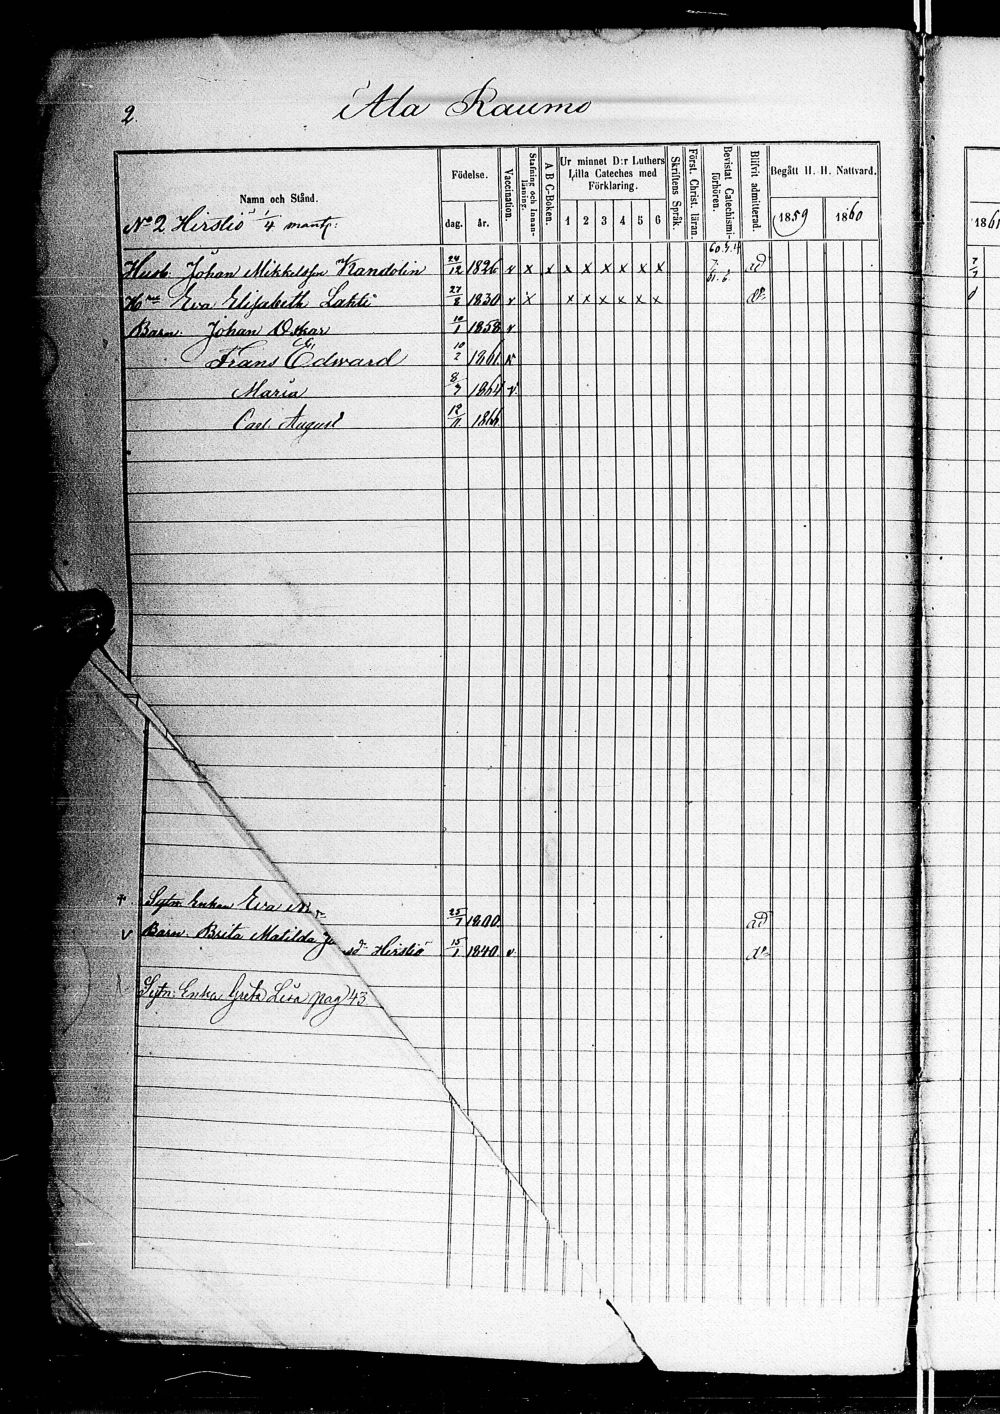 2.
Ala Raumo
Namn och Stånd.
Födelse.
dag.
år.
Vaccination.
Stafning och Innanläsning.
A B C-Boken.
Ur minnet D:r Luthers Lilla Cateches med Förklaring.
1 2 3 4 5 6
Skriftens Språk.
Först. Christ. läran.
Bevistat Catechismiförhören.
Blifvit admitterad.
Begått H. H. Nattvard.
1859 1860
1861
No 2 Hirsliö 1/4 mantl:
Husb. Johan Mikkelsson Kandolin 24/12 1826 v x x x x x x x x 60. 3. 4 ad
H:nu Eva Elisabeth Lahti 27/8 1830 v x x x x x x x
Barn. Johan Oskar 10/1 1858 v
Frans Edward 10/2 1861 v
Maria 8/3 1864 v
Carl August 12/11 1866
Sytn. Enkan Eva 25/7 1800 ad
v Barn. Brita Matilda J sdr Hirsliö 15/1 1840 v
Sytn. Enka Greta Lisa pag 43